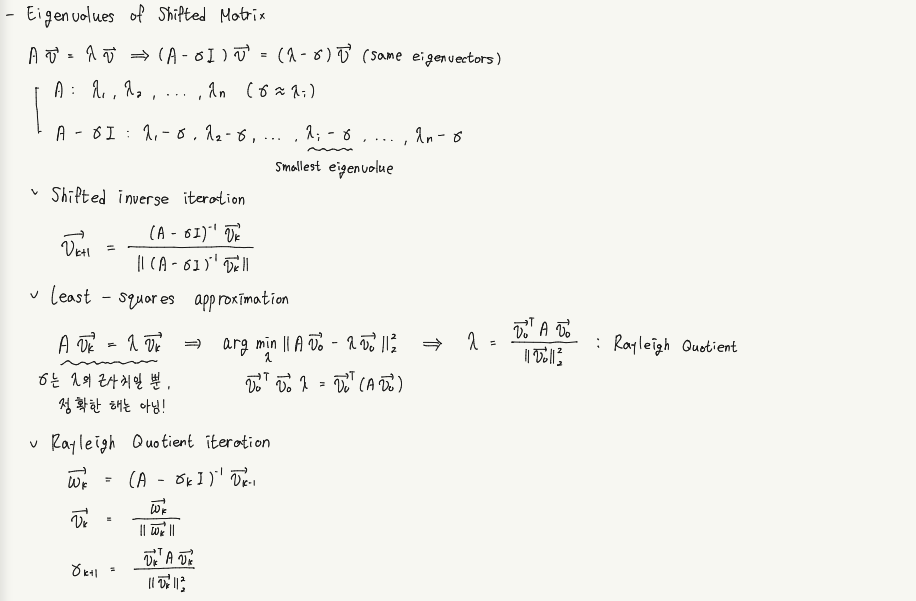 - Eigenvalues of Shifted Matrix
A v⃗ = λ v⃗ ⟹ (A - σI) v⃗ = (λ - σ) v⃗ (same eigenvectors)
A : λ₁, λ₂, ..., λn (σ ≈ λᵢ)
A - σI : λ₁ - σ, λ₂ - σ, ... , λᵢ - σ, ..., λn - σ
smallest eigenvalue
∨ Shifted inverse iteration
v⃗ₖ₊₁ = (A - σI)⁻¹ v⃗ₖ / ||(A - σI)⁻¹ v⃗ₖ||
∨ Least - squares approximation
A v⃗ₖ = λ v⃗ₖ ⟹ arg min_λ ||A v⃗₀ - λ v⃗₀||₂² ⟹ λ = v⃗₀ᵀ A v⃗₀ / ||v⃗₀||₂² : Rayleigh Quotient
σ는 λ의 근사치일 뿐, v⃗₀ᵀ v⃗₀ λ = v⃗₀ᵀ (A v⃗₀)
정확한 해는 아님!
∨ Rayleigh Quotient iteration
w⃗ₖ = (A - σₖ I)⁻¹ v⃗ₖ₋₁
v⃗ₖ = w⃗ₖ / ||w⃗ₖ||
σₖ₊₁ = v⃗ₖᵀ A v⃗ₖ / ||v⃗ₖ||₂²